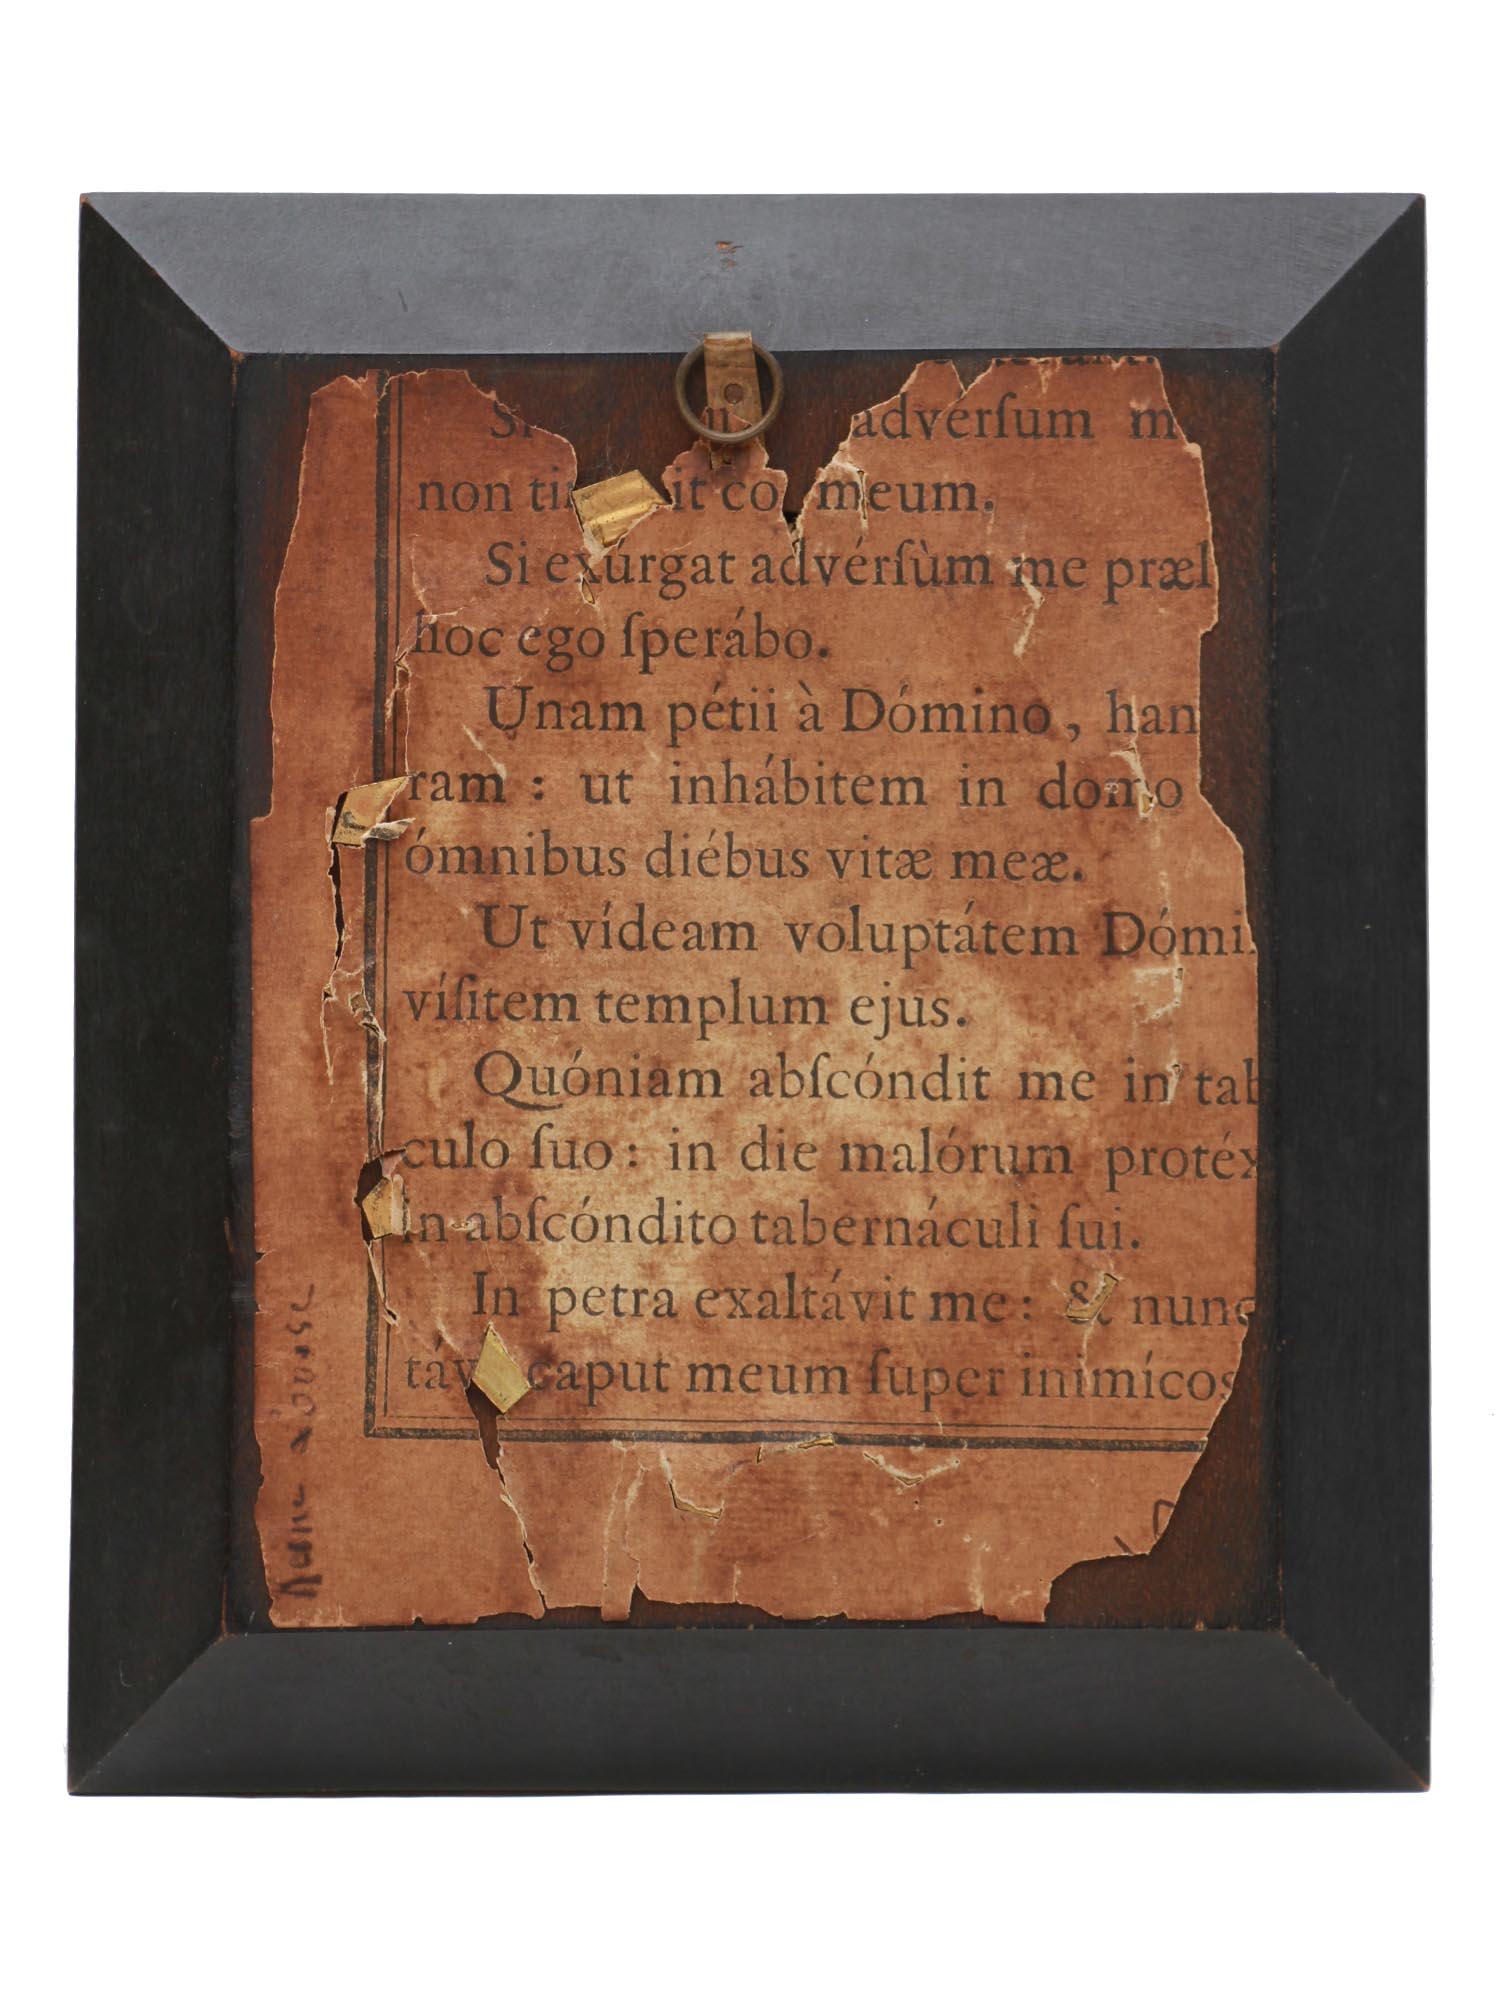 adverſum m
non ti it co meum.
Si exúrgat advérſùm me præl
hoc ego ſperábo.
Unam pétii à Dómino, han
ram : ut inhábitem in domo
ómnibus diébus vitæ meæ.
Ut vídeam voluptátem Dómi
víſitem templum ejus.
Quóniam abſcóndit me in tab
culo ſuo : in die malórum protéx
in abſcóndito tabernáculi ſui.
In petra exaltávit me : & nunc
táv caput meum ſuper inimícos